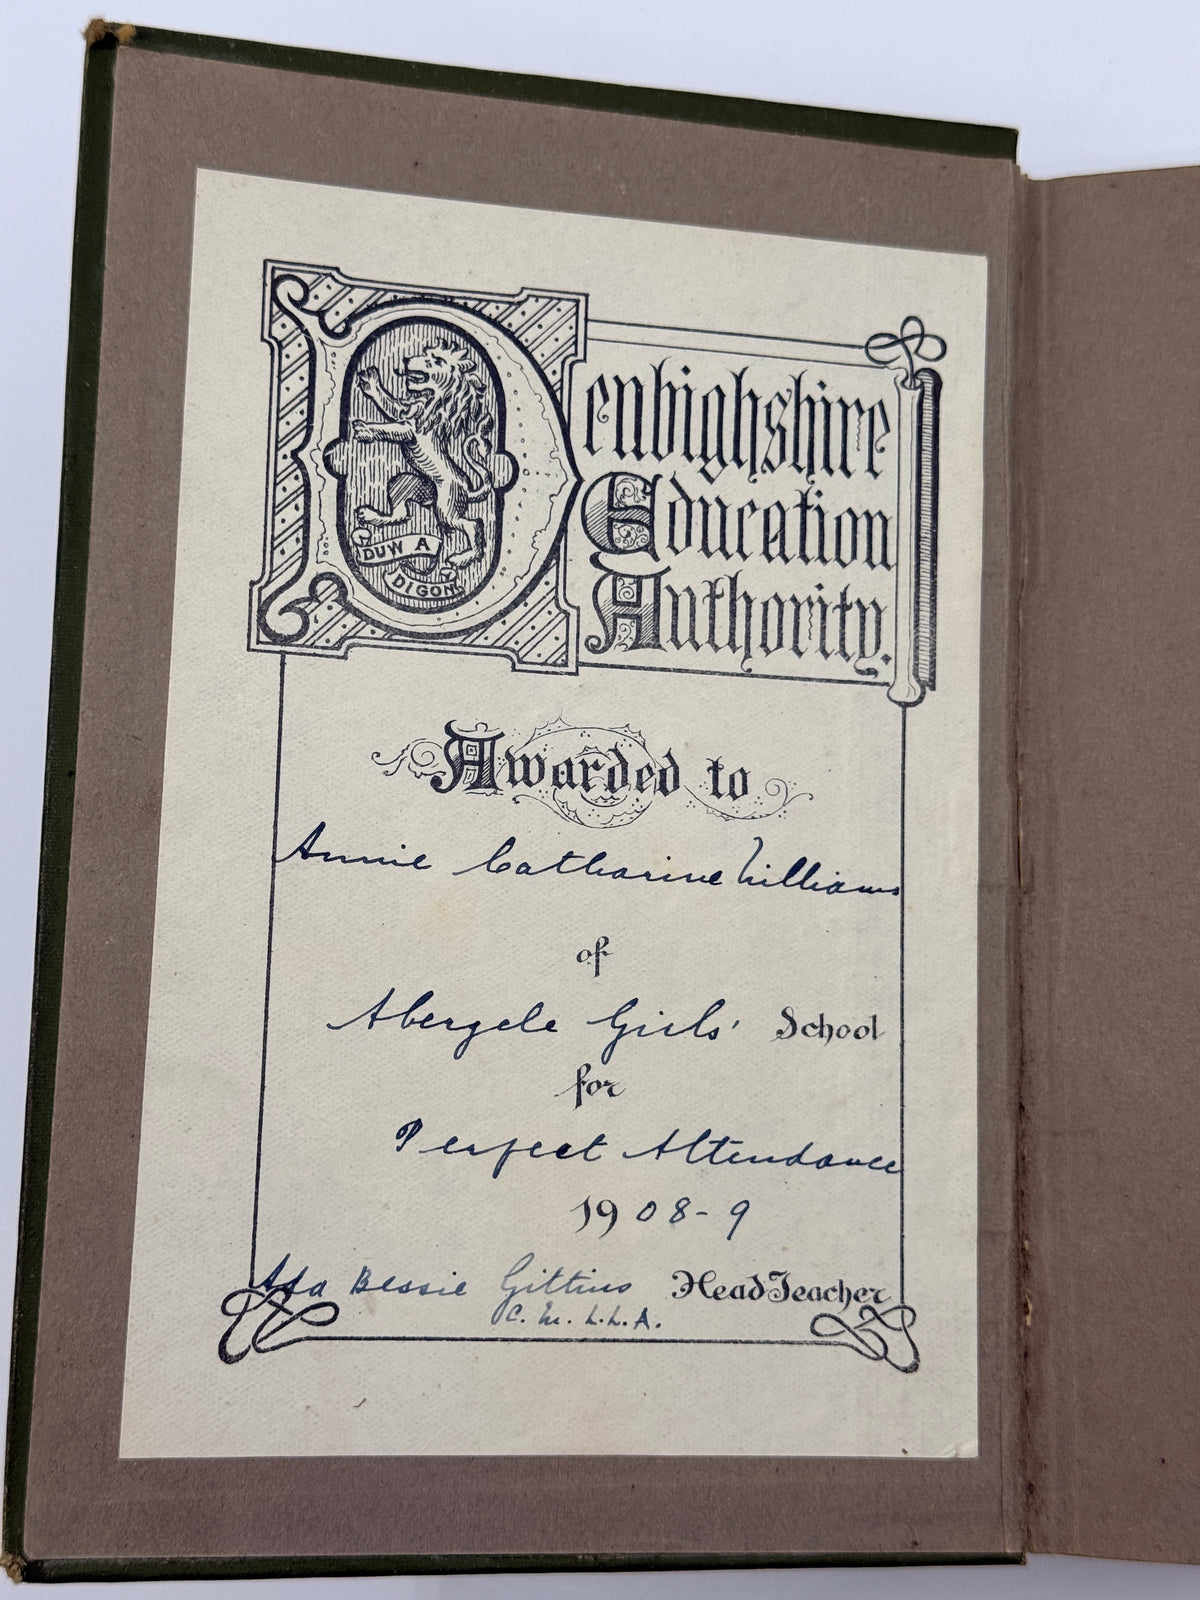 Denbighshire
Education
Authority.
DUW A
DIGON
Awarded to
Annie Catharine Williams
of
Abergele Girls' School
for
Perfect Attendance
1908-9
Ada Bessie Gittins Head Teacher
C. M. L.L.A.